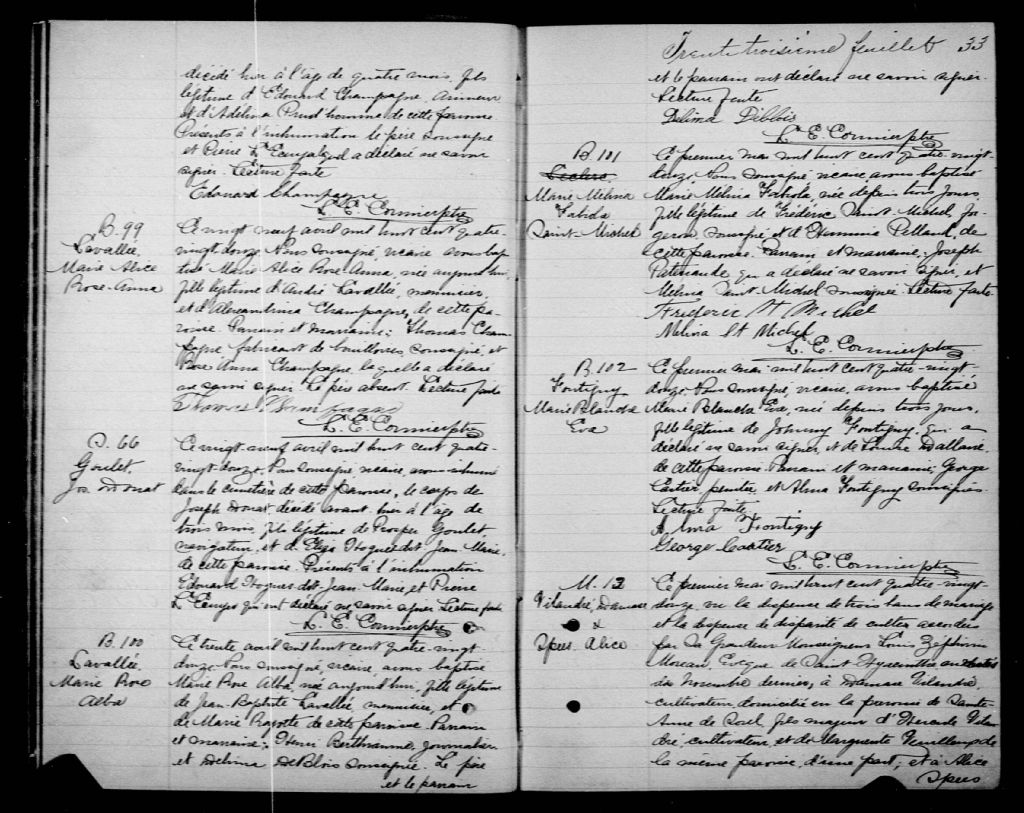 décédé hier à l'âge de quatre mois, fils
légitime d'Edouard Champagne, armurier
et d'Adélina Prud'homme de cette paroisse
Présents à l'inhumation le père soussigné
et Pierre qui a déclaré ne savoir
signer. Lecture faite
Edouard Champagne
L. E. Cormier ptre
B. 99
Lavallée,
Marie Alice
Rose-Anna
Ce vingt neuf avril mil huit cent quatre-
vingt douze Nous soussigné, vicaire avons bap-
tisé Marie Alice Rose-Anna, née aujourd'hui,
fille légitime d'André Lavallée, menuisier,
et d'Alexandrina Champagne, de cette pa-
roisse. Parrain et marraine: Thomas Cham-
pagne fabricant de bouilloires soussigné, et
Rose Anna Champagne, laquelle a déclaré
ne savoir signer. Le père absent. Lecture faite
Thomas Champagne
L. E. Cormier ptre
S. 66
Goulet
Jos Donat
Ce vingt-neuf avril mil huit cent quatre-
vingt-douze, Nous soussigné vicaire, avons inhumé
dans le cimetière de cette paroisse, le corps de
Joseph Donat, décédé avant hier à l'âge de
trois mois, fils légitime de Prosper Goulet,
navigateur, et d'Eliza Hogues dit Jean-Marie,
de cette paroisse. Présents à l'inhumation
Edouard Hogues dit Jean Marie et Pierre
qui ont déclaré ne savoir signer Lecture faite
L. E. Cormier ptre
B. 100
Lavallée,
Marie Rose
Alba
Ce trente avril mil huit cent quatre-vingt
douze Nous soussigné, vicaire, avons baptisé
Marie Rose Alba, née aujourd'hui, fille légitime
de Jean-Baptiste Lavallée, menuisier, et
de Marie de cette paroisse Parrain
et marraine: Henri Berthiaume, journalier
et Delima DeBlois soussignée. Le père
et le parrain
Trente troisième feuillet 33
et le parrain ont déclaré ne savoir signer.
Lecture faite
Delima DeBlois
L. E. Cormier ptre
B 101
Marie Mélina
Fabiola
Saint-Michel
Ce premier mai mil huit cent quatre-vingt-
douze, Nous soussigné vicaire, avons baptisé
Marie Mélina Fabiola, née depuis trois jours
fille légitime de Frédéric Saint-Michel, for-
geron, soussigné et d'Herminie Pelland, de
cette paroisse. Parrain et marraine: Joseph
Patenaude qui a déclaré ne savoir signer, et
Mélina Saint-Michel soussignée. Lecture faite
Frederic St Michel
Melina St Michel
L. E. Cormier ptre
B. 102
Fontigny
Marie Blanche
Eva
Ce premier mai mil huit cent quatre-vingt-
douze, Nous soussigné, vicaire, avons baptisé
Marie Blanche Eva, née depuis trois jours,
fille légitime de Johnny Fontigny, qui a
déclaré ne savoir signer, et de Dallaire,
de cette paroisse. Parrain et marraine: George
Cartier peintre, et Alma Fontigny soussignés.
Lecture faite
Alma Frontigny
George Cartier
L. E. Cormier ptre
M. 13
Vilandré, Damase
&
Spees Alice
Ce premier mai mil huit cent quatre-vingt-
douze, vu la dispense de trois bans de mariage
et la dispense de disparité de cultes accordées
par Sa Grandeur Monseigneur Louis Zéphirin
Moreau, Evêque de Saint Hyacinthe en
du Novembre dernier, à Damase Vilandré,
cultivateur, domicilié en la paroisse de Sainte
Anne de Sorel, fils majeur d'Hercule Vilan-
dré, cultivateur, et de Marguerite de
la même paroisse, d'une part; et à Alice
Spees